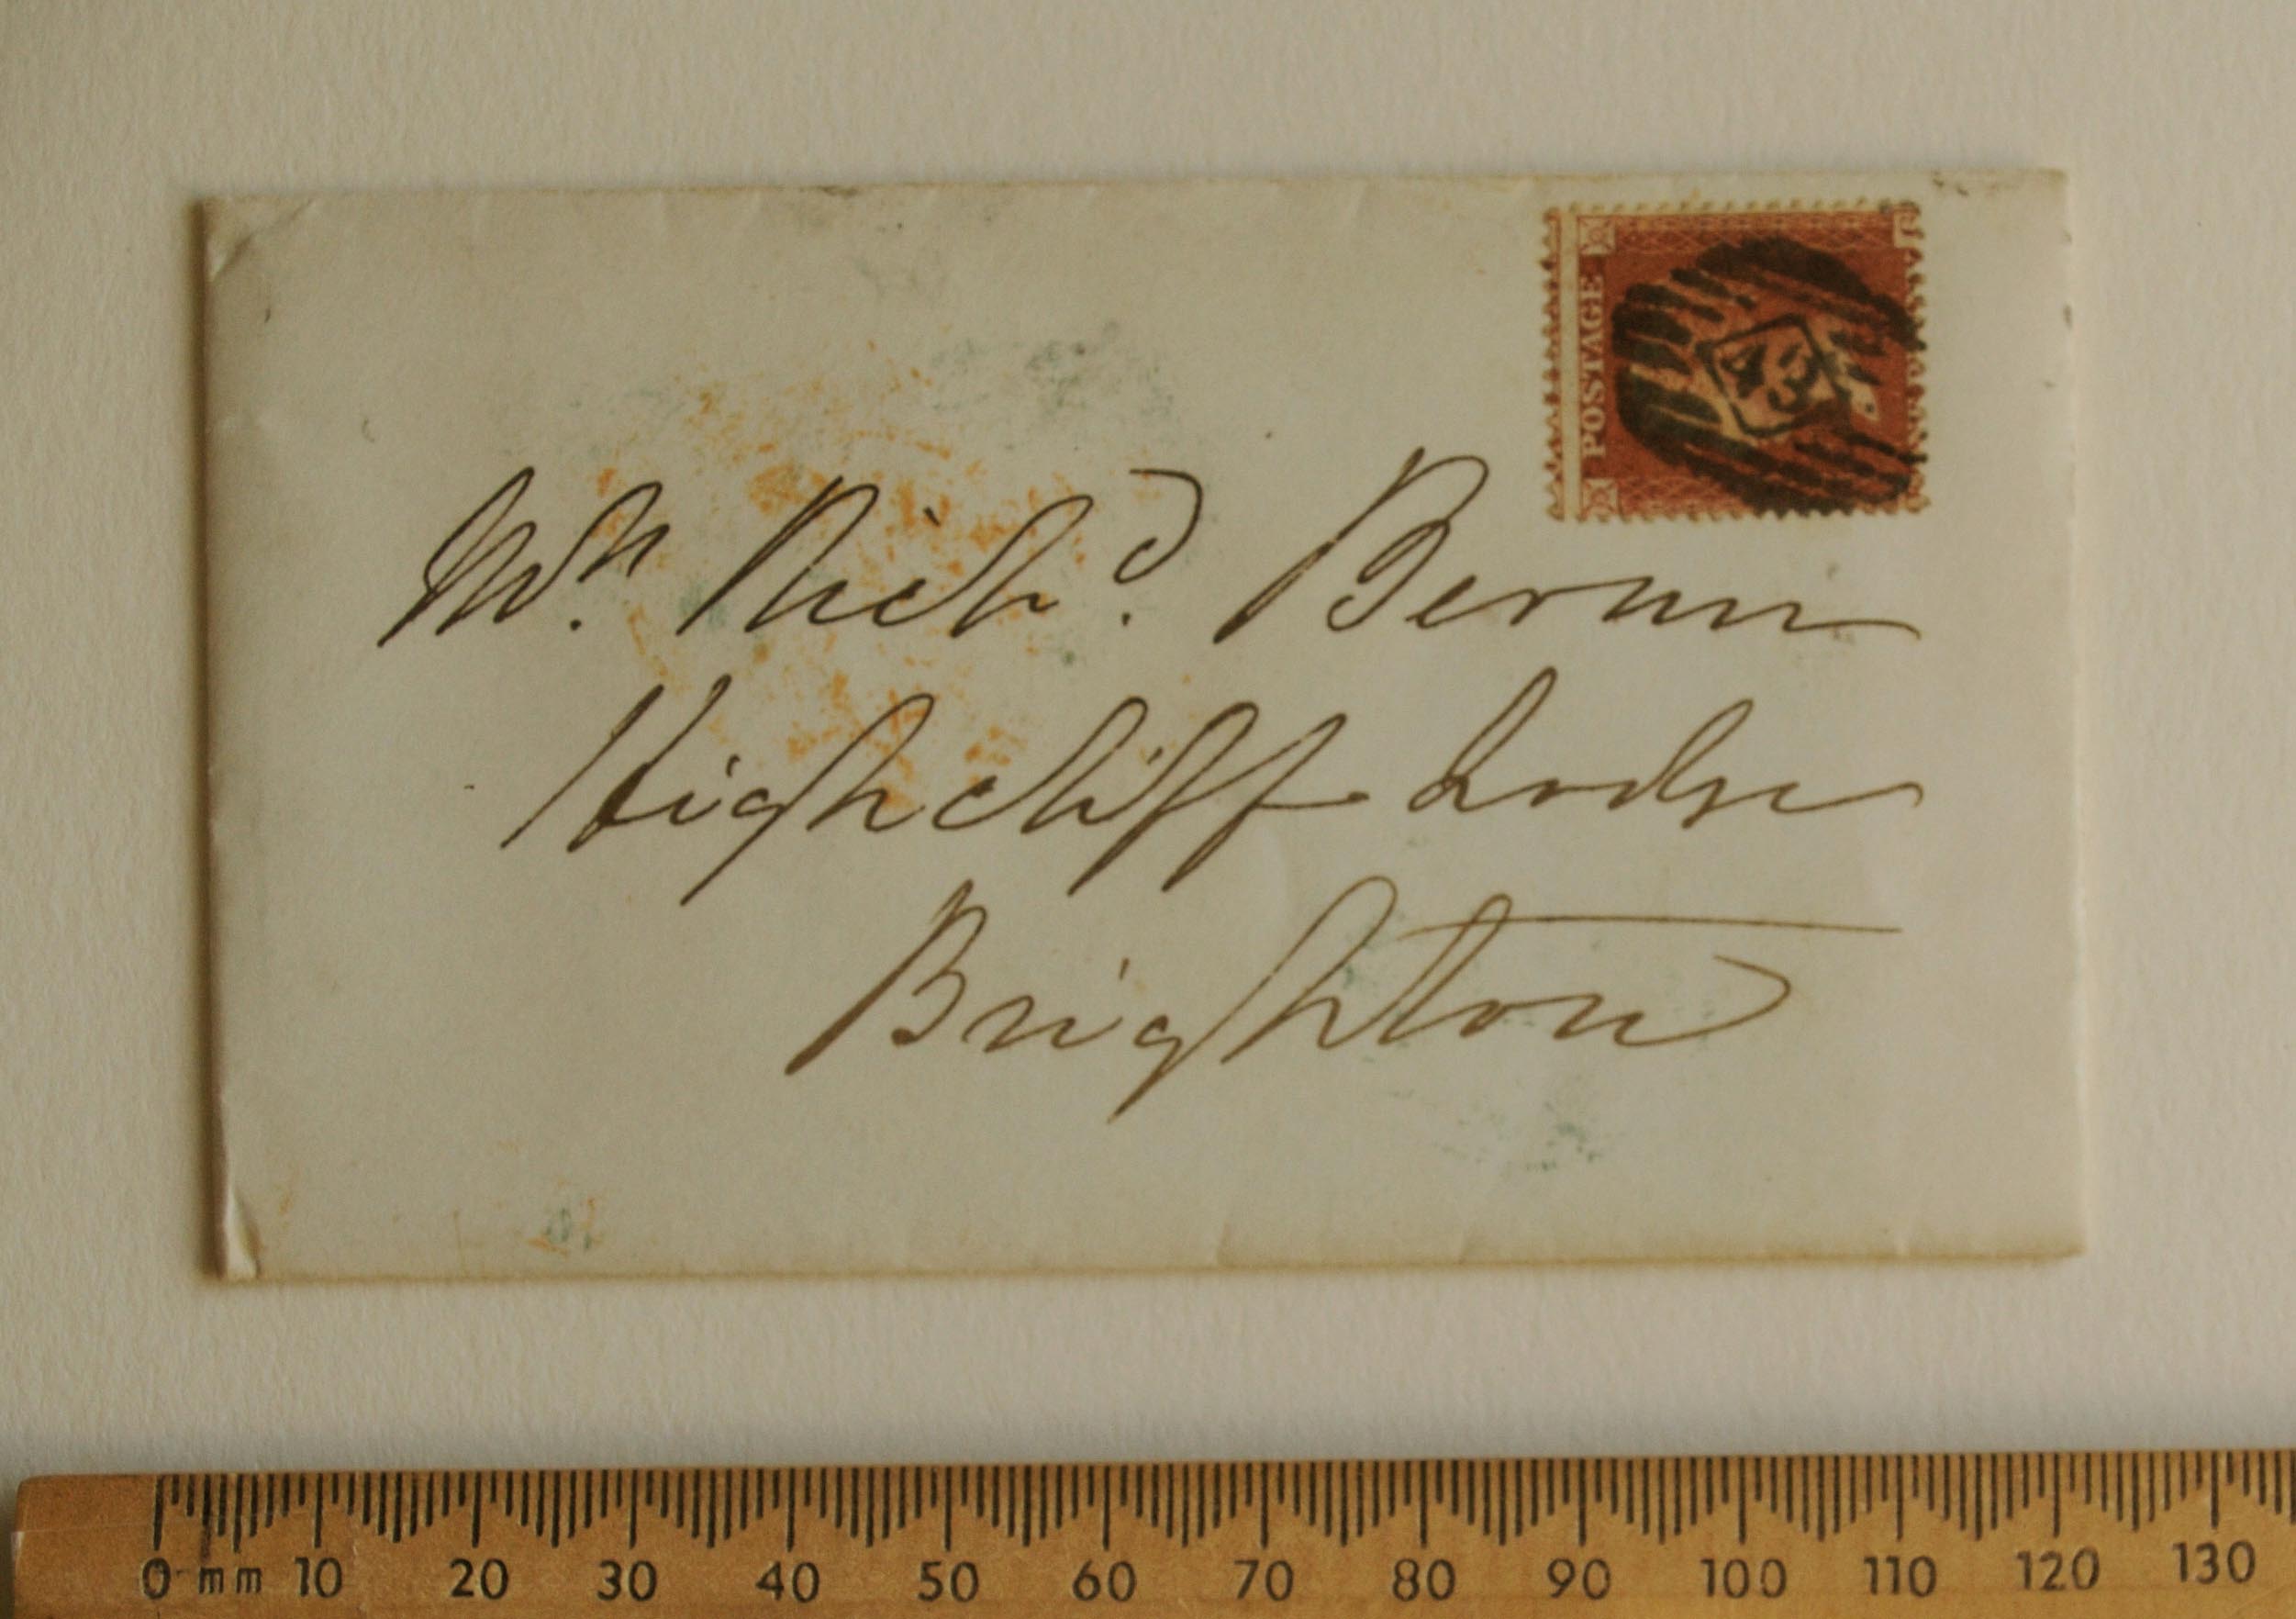 POSTAGE
43
Mr. Richd. Bevan
Highcliff Lodge
Brighton
0 mm 10 20 30 40 50 60 70 80 90 100 110 120 130